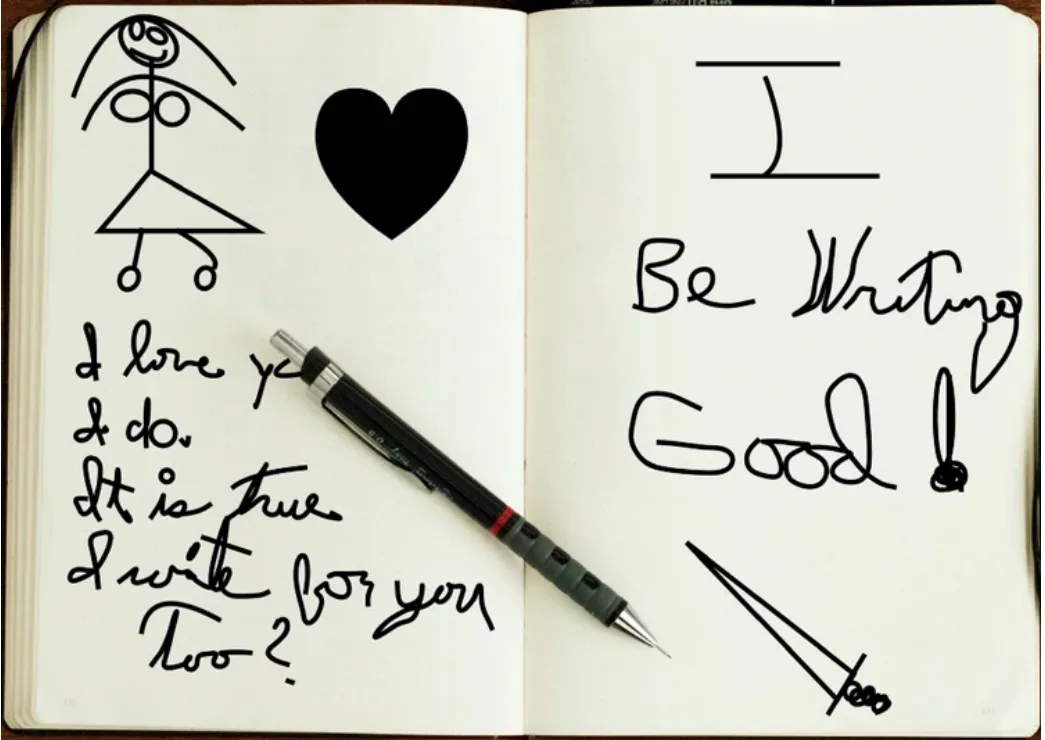 I love
I do.
It is true.
I write for you
Too?
I
Be Writing
Good !